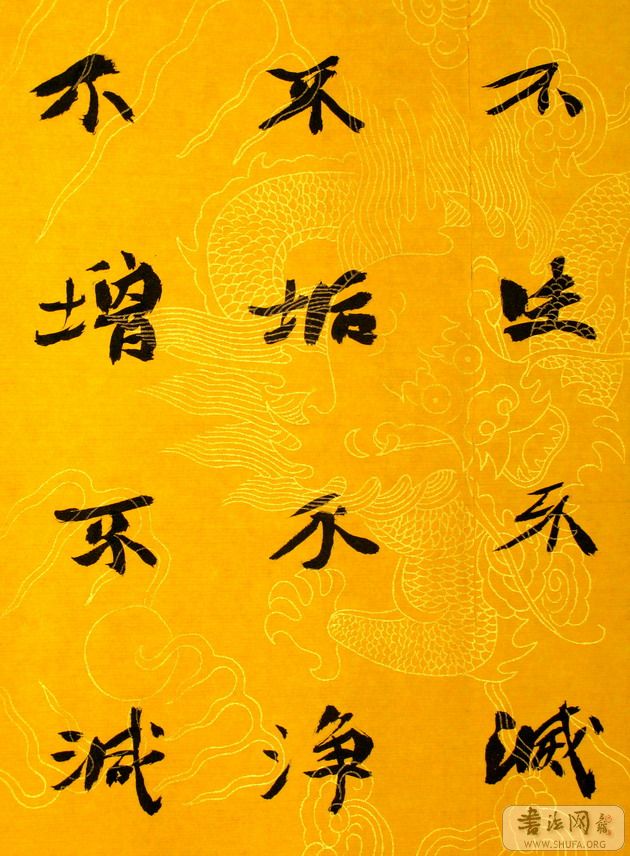 不生不滅
不垢不净
不增不減
書法网
WWW.SHUFA.ORG